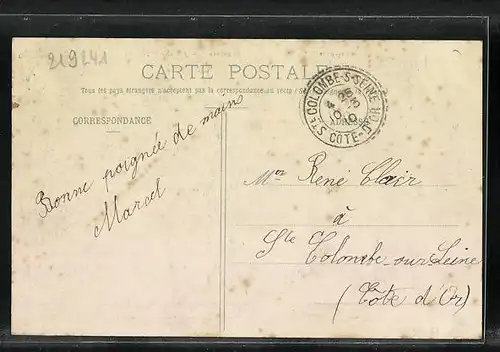 219241
CARTE POSTALE
Tous les pays étrangers n'acceptent pas la correspondance au recto
CORRESPONDANCE
ADRESSE
STE COLOMBE-S-SEINE
COTE-D'OR
Bonne poignée de mains
Marcel
Mr René Clair
à
Ste Colombe sur Seine
(Côte d'Or)